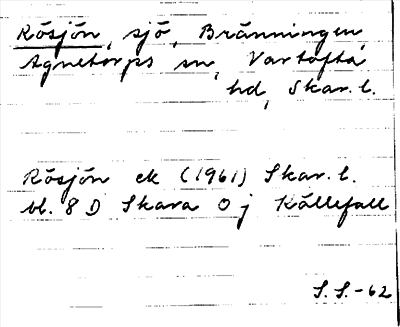 Rösjön, sjö, Bränningen,
Agnetorps sn, Vartofta
hd, Skar. l.
Rösjön ek (1961) Skar. l.
bl. 8 D Skara 0 j Källefall
S. S. -62